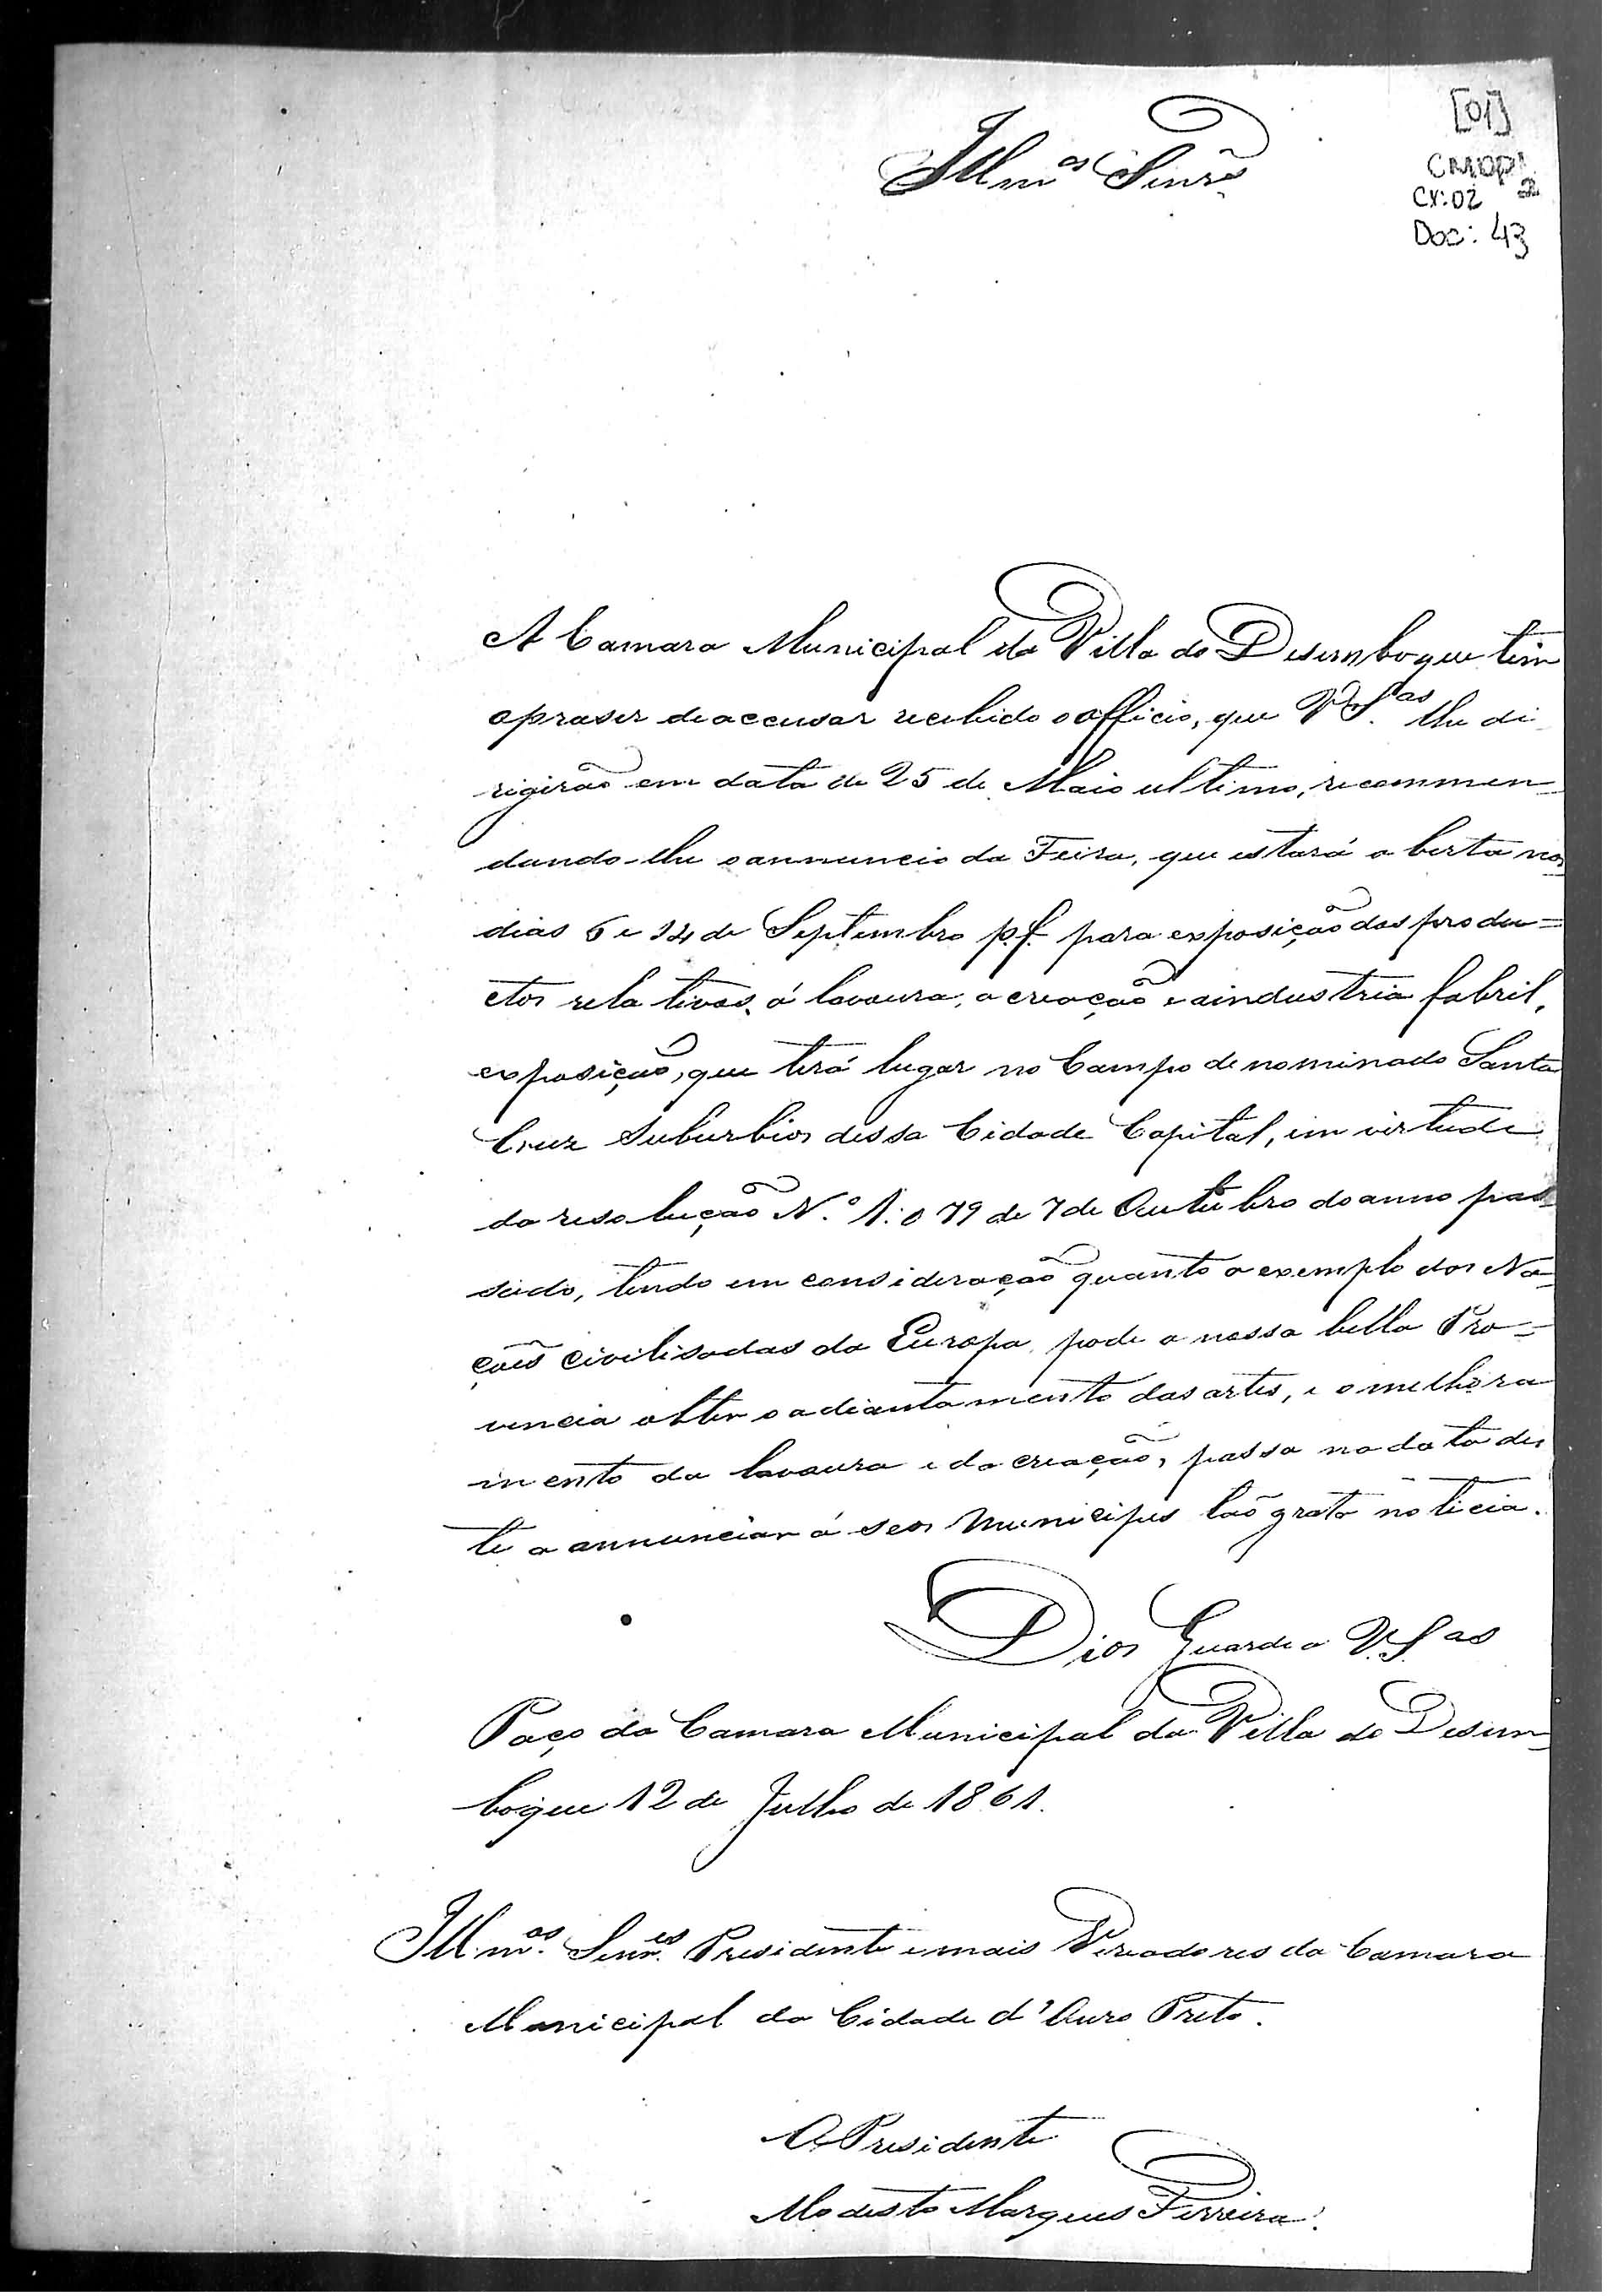 [01]
CMOP
Cx: 02 2
Doc: 43
Illmos Senrs
A Camara Municipal da Villa do Desemboque tem
o praser de accusar recebido o officio, que V.S.as lhe di
rigirão em data de 25 de Maio ultimo, recommen=
dando-lhe o annuncio da Feira, que estará aberta nos
dias 6 e 14 de Septembro p.f. para exposição dos produ=
ctos relativos á lavoura, a creação e a industria fabril,
exposição, que terá lugar no Campo denominado Santa
Cruz suburbios dessa Cidade Capital, em virtude
da resolução N.º 1:079 de 7 de Outubro do anno pas=
sado, tendo em consideração quanto o exemplo das Na=
ções civilisadas da Europa, pode a nossa bella Pro=
vencia obter o adiantamento das artes, e o melhora
mento da lavoura e da creação, passa na data des
te a annunciar á seos Municipes tão grata noticia.
Dios Guarde a V.S.as
Paço da Camara Municipal da Villa do Desem=
boque 12 de Julho de 1861.
Illmos. Senres. Presidente e mais Vereadores da Camara
Municipal da Cidade d'Ouro Preto.
O Presidente
Modesto Marques Ferreira.